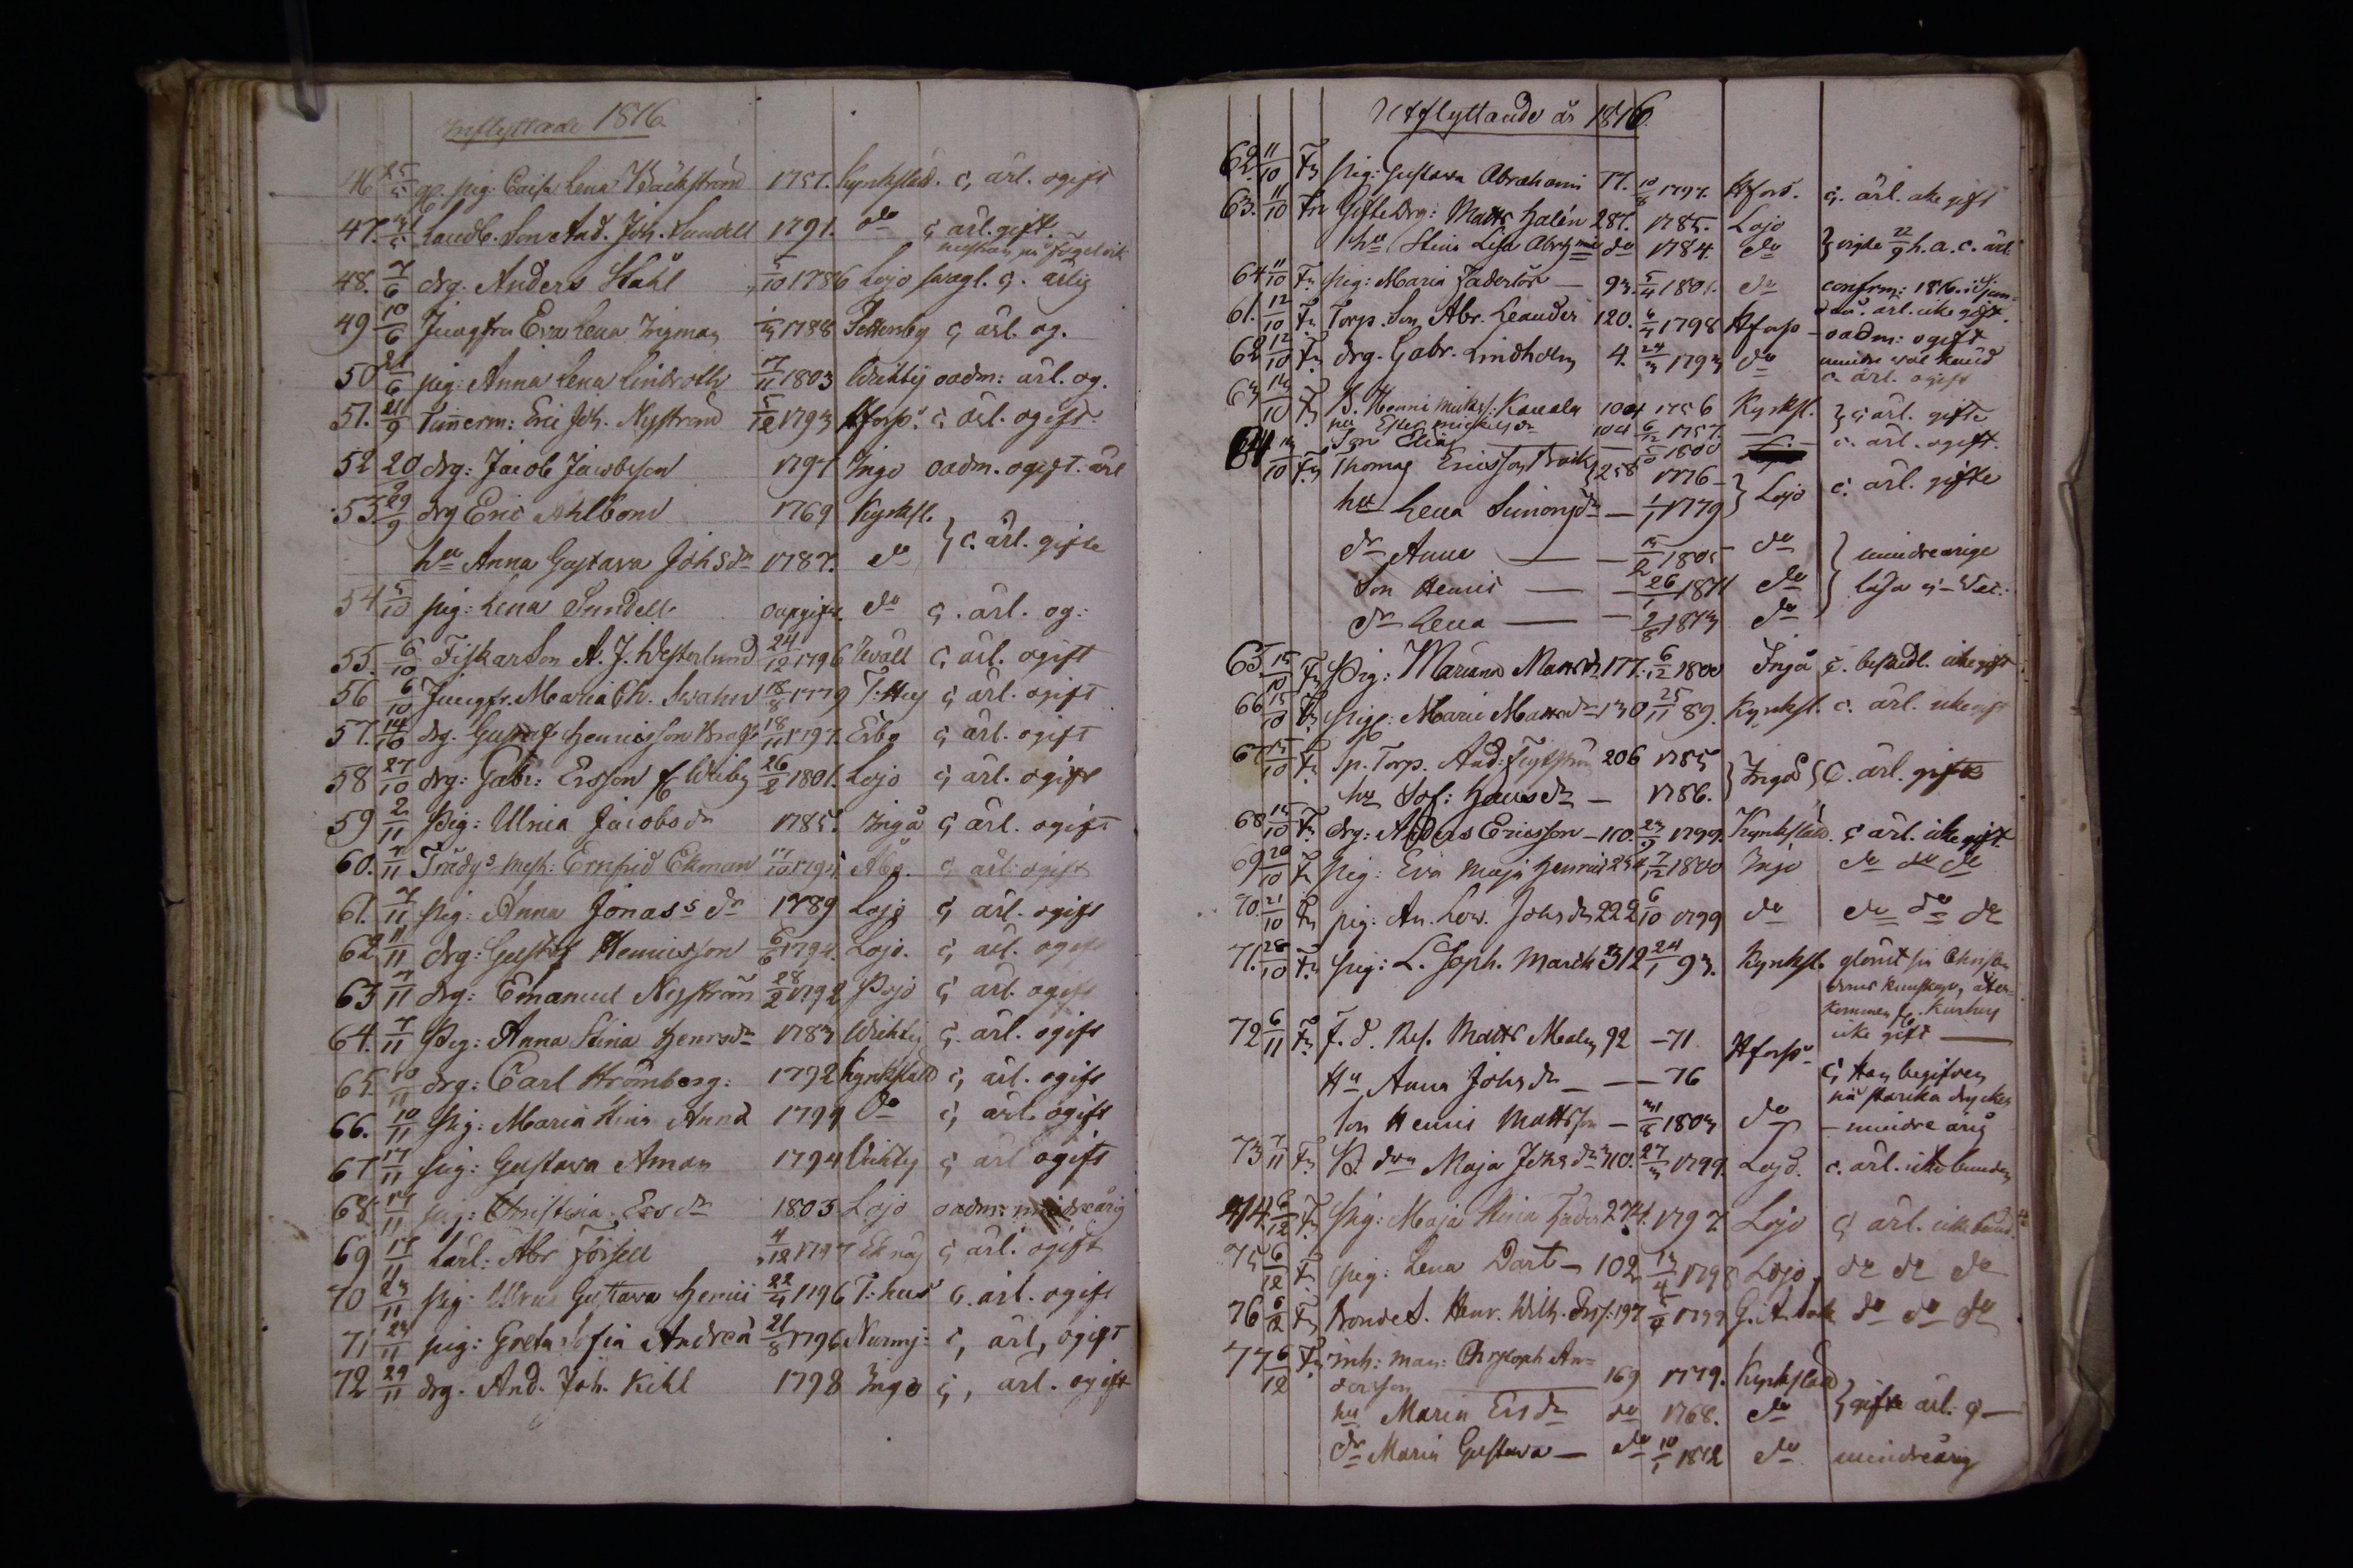 Inflyttade 1816.
46 25/5 pig: Caisa Lena Wäckström 1751. Kyrkslätt. c, ärl. ogift
47. Landb. Son And. Joh. Sundell 1791. do c, ärl. gift.
48. 7/6 drg. Anders Ståhl 5/10 1786 Lojo swagl. c. ärlig
49 10/6 Jungfru Eva Lena Ingman 1788 Tettersby c, ärl. og.
50 21/6 pig: Anna Lena Lindroth 17/11 1803 Wichtij oadm: ärl. og.
51. 21/9 Timmerm: Eric Joh. Nyström 5/12 1793 Hforss. c, ärl. ogift.
52 20/9 drg: Jacob Jacobsson 1797 Ingo oadm. ogift. ärl
53 29/9 drg Eric Ahlbom 1769 Kyrksl.
hu Anna Gustava Johsdr 1787. do } c. ärl. gifte
54 5/10 pig: Lena Sundell oupgift. do c. ärl. og:
55. 6/10 Fiskar Son A. J. Westerlund 24/12 1796 c, ärl. ogift
56 6/10 Jungfr. Maria Ch. Swahn 18/8 1779 T:Hus c, ärl. ogift
57. 14/10 drg. Gustaf Henricsson 18/11 1797. Esbo c, ärl. ogift
58 27/10 drg: Gabr: Ersson fr Wiiby 26/2 1801. Lojo c, ärl. ogift
59 2/11 Pig: Ulrica Jacobsdr 1785. Ingå c, ärl. ogift
60. Trädgs mest: Ernfrid Ekman 17/10 1795 Åbo. c, ärl: ogift
61. 7/11 pig: Anna Jonass dr 1789 Lojo c, ärl. ogift
62 11/11 drg: Gustaf Henricsson 6/6 1794. Lojo. c, ärl. ogift
63 7/11 drg: Emanuel Nyström 28/2 1792 Pojo c, ärl. ogift
64. 7/11 Pig: Anna Stina Henrsdr 1783 Wichtij c. ärl. ogift
65. 10/11 drg: Carl Strömberg: 1792 Kyrkslätt c, ärl. ogift
66. 10/11 Pig: Maria Stina Annd 1799 do c, ärl. ogift
67 17/11 pig: Gustava Aman 1794 Wichtij c, ärl ogift
68. 17/11 pig: Christina Ersdr 1803 Lojo oadm: mindreårig
69 17/11 Lärl: Abr Forsell 4/12 1797 Eknäs c, ärl. ogift
70 23/11 pig: Ulrica Gustava Henric 22/4 1796 T:hus c. ärl. ogift
71 23/11 pig: Greta Sofia Andreæ 21/8 1796 Nurmj: c, ärl, ogift
72 29/11 drg. And. Joh. Kihl 1798 Ingo c, ärl. ogift
Utflyttande år 1816.
62. 11/10 Fr Pig: Gustava Abrahami 77. 10/8 1797. Hfors. c. ärl. icke gift
63. 11/10 Fr Gifte Drg: Matts Halén 287. 1785. Lojo
hu Stina Lisa Abrhms do 1784. do } wigde 22/9 h. a. c. ärl.
64 11/10 Fr pig: Maria Zadestör — 93. 5/4 1801. do confrm: 1816.
61. 12/10 Fr Torp. Son Abr. Leander 120. 6/4 1798 Hforss — oadm: ogift
62 12/10 Fr Drg. Gabr. Lindholm 4. 24/3 1793 do mindre wäl känd
c. ärl. ogift
63 B. Henric Mickls: Kanala 104 1756 Kyrksl.
hu Ester Mickelsdr 104 6/12 1757. } c ärl. gifte
Son Elias — 1800 c. ärl. ogift.
64 Thomas Ericsson 258 1776 —
hu Lena Simonsdr — 1/1 1779 } Lojo c. ärl. gifte
dr Anna — 15/2 1805 do
Son Henric — 26/1 1811 do } mindreårige
dr Lena — 2/8 1813 do
65. 15/10 Fr Pig: Mariana Mattsdr 177. 6/12 1800 Ingå c. beskedl. icke gift
66 15/10 Fr pig: Marie Mattsdr 130 25/11 89. Kyrksl. c. ärl. icke gift
67 15/10 Fr Sp. Torp. And: 206 1785
hu Sof: Hansdr — 1786. } Ingå { C. ärl. gifte
68 15/10 Fr drg: Anders Ericsson — 110. 1799. Kyrkslätt. c ärl. icke gift
69 20/10 Fr pig: Eva Maja Henricsd 254 7/12 1800 Ingo do do do
70. 21/10 Fr pig: An. Lov. Johsdr 222 6/10 1799 do do do do
71. 28/10 Fr pig: L. Soph. March 312 24/1 93. Kyrksl.
kommen fr. Kurhus
icke gift —
72 6/11 Fr F. d. Ref. Matts Mealn 92 — 71 Hforss
Hu Anna Johsdr — — 76 c, Han begifven
på starcka drycker
Son Henric Mattsson — 31/8 1803 do — mindre årig
73 7/11 Fr B. dr Maja Johsdr 310. 27/3 1799. Lojo. c. ärl. icke bunden
74. 6/12 Fr Pig: Maja Stina 274. 1797 Lojo c, ärl. icke bund.
75 6/12 Fr pig: Lena Dart — 102 13/4 1798 Lojo do do do
76 6/12 Fr Bonde S. Henr. Wilh. Ersf. 197 1799 do do do
77 6/12 Fr Inh: man: Christoph An=
dersson — 169 1779. Kyrkslätt
hu Maria Ersdr do 1768. do } gifte ärl. c —
dr Maria Gustava — do 10/1 1812 do mindreårig